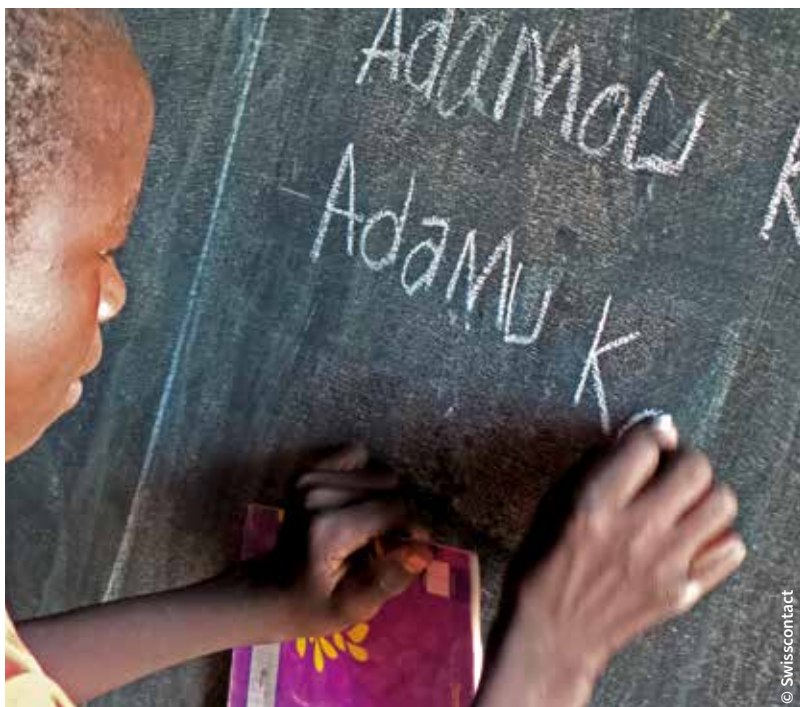 Adamou K
Adamu K
© Swisscontact